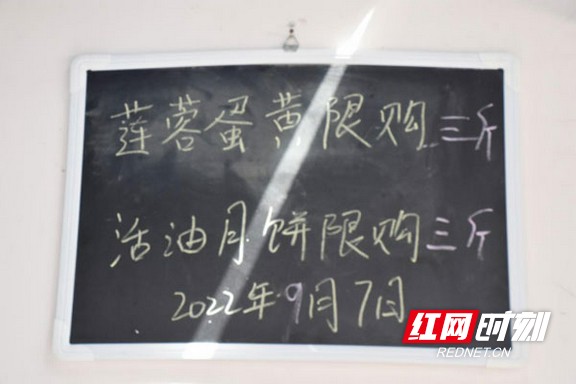 莲蓉蛋黄限购三斤
活油月饼限购三斤
2022年9月7日
红网时刻
REDNET.CN